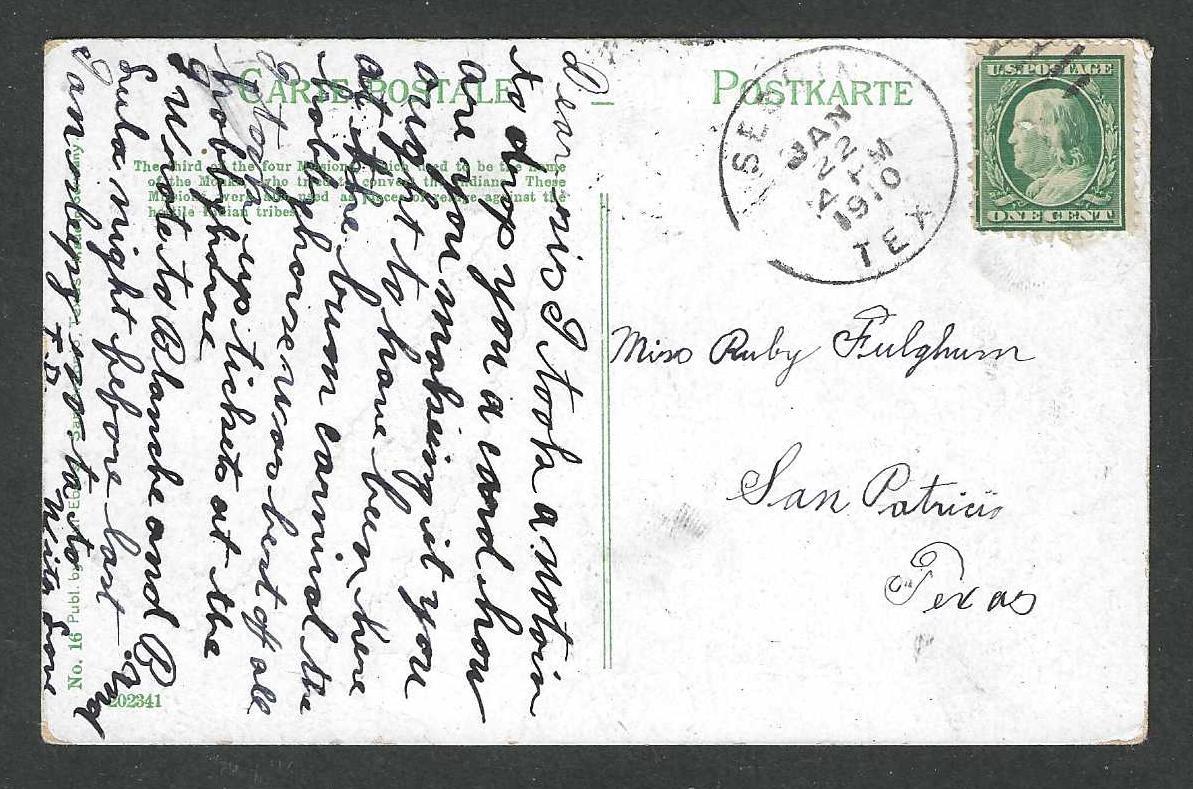 CARTE POSTALE
—
POSTKARTE
The third of the four Missions, which used to be the home
of the Monks, who tried to convert the Indians. These
Missions were also used as places of refuge against the
hostile Indian tribes.
No. 16 Publ. by
202341
SEGUIN
JAN
22
AM
1910
TEX
U.S. POSTAGE
ONE CENT
Dear sis I took a notoin
to drop you a card how
are you making it you
ought to have bein here
at the burn carnival the
hobby horse was best of all
up tickets at the
hobby horse
I wrote to Blanche and B
Lula night before last and
I ans to
With Love
F.D.
Miss Ruby Fulghum
San Patricio
Texas